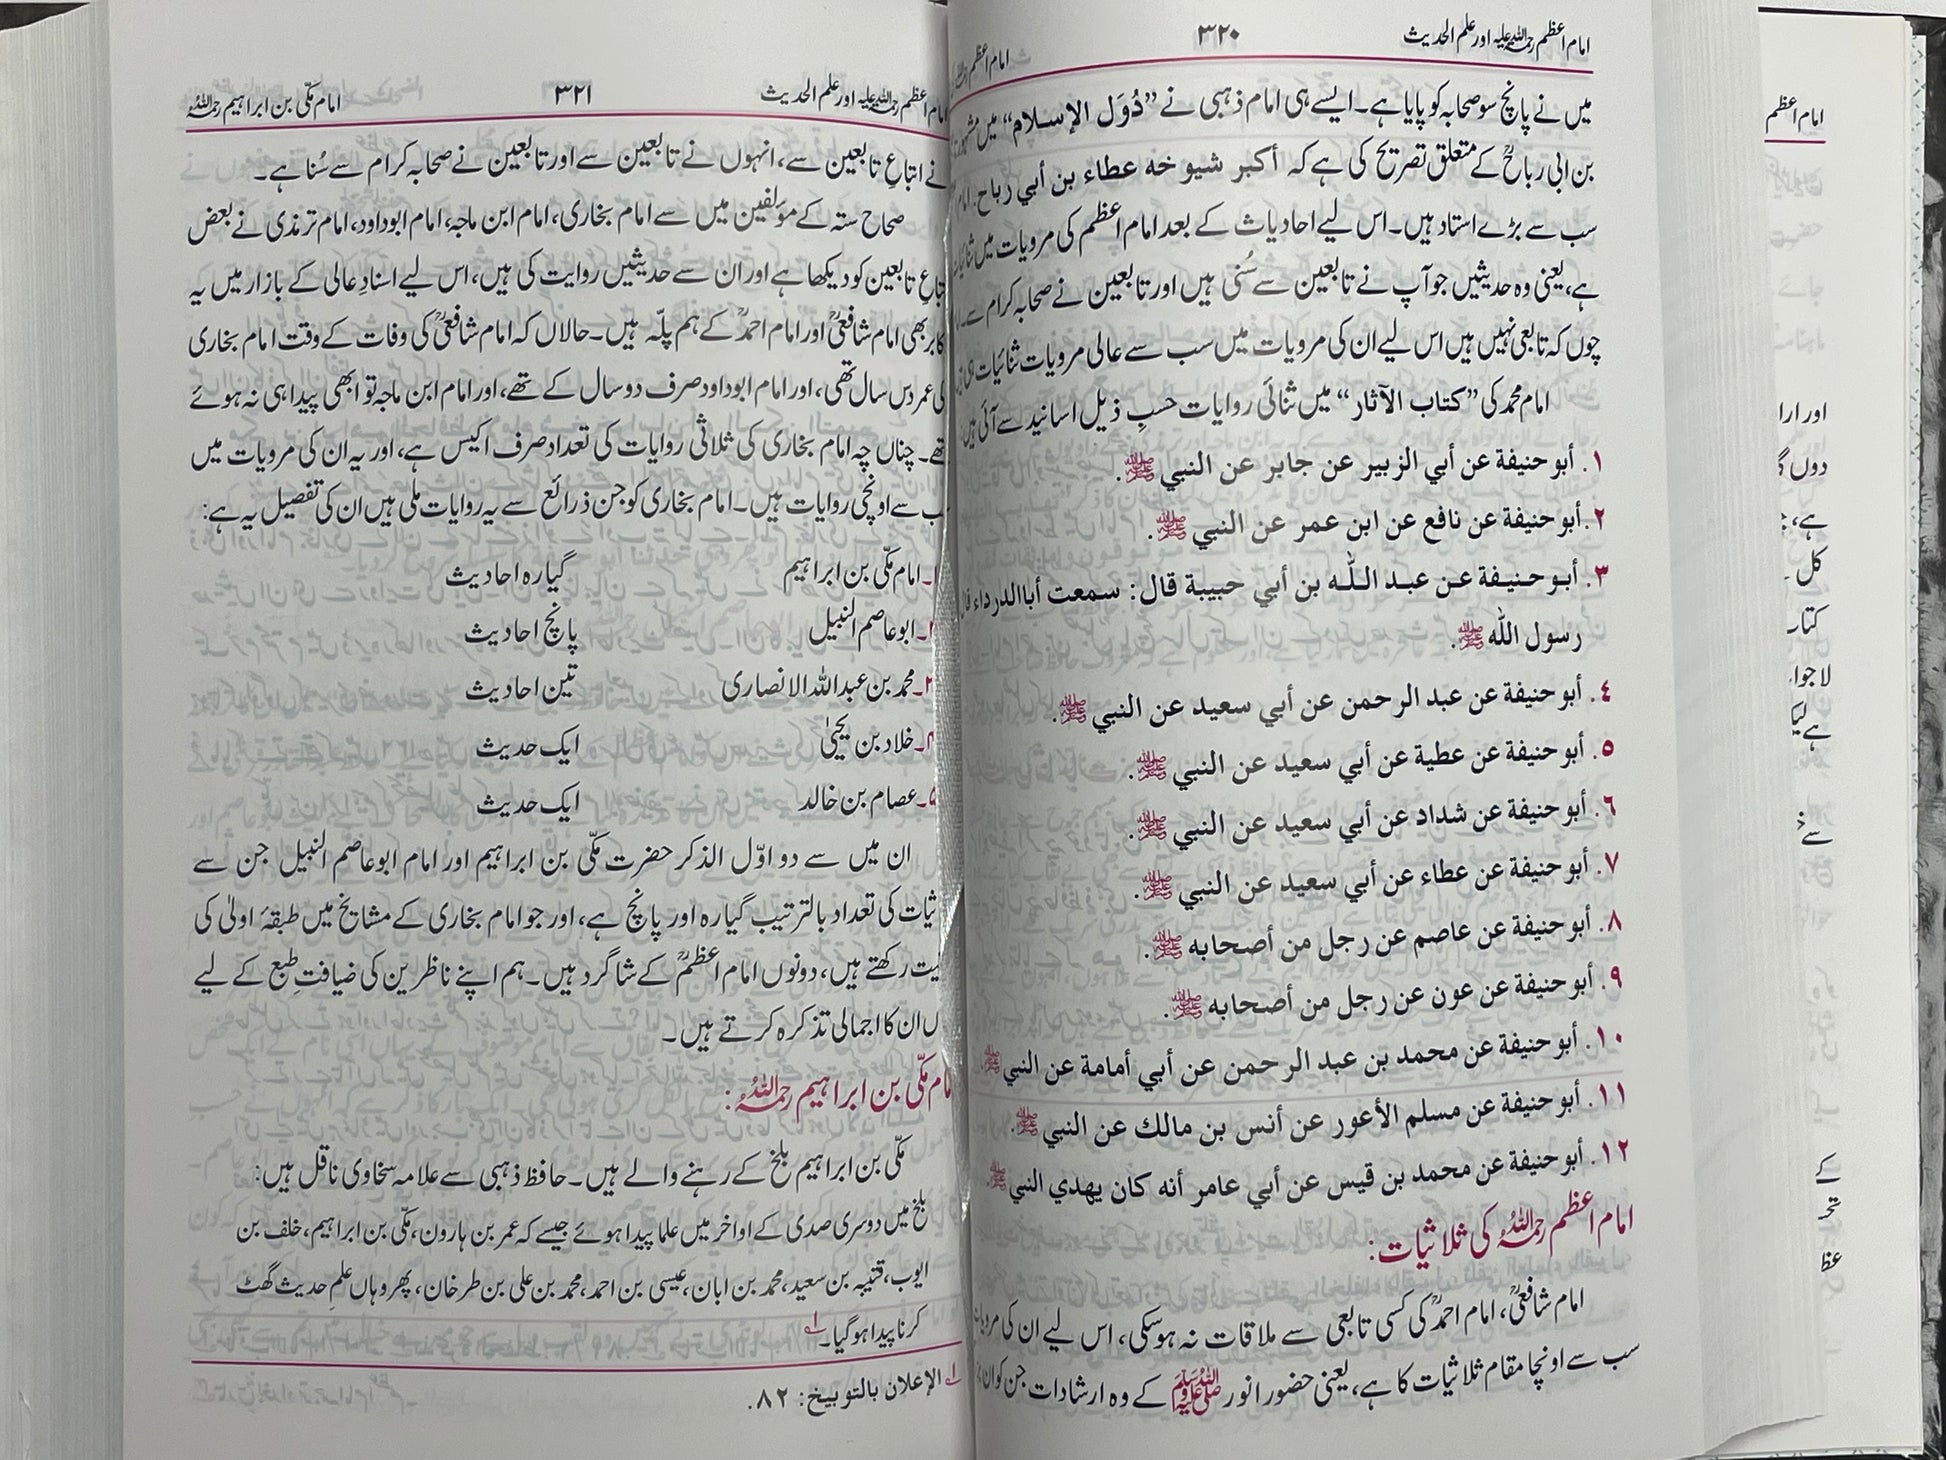 امام اعظم رحمۃ اللہ علیہ اور علم الحدیث ۳۲۰
میں نے پانچ سو صحابہ کو پایا ہے۔ ایسے ہی امام ذہبی نے ”دُوَل الإسلام“ میں
بن ابی رباحؒ کے متعلق تصریح کی ہے کہ أكبر شيوخه عطاء بن أبي رباح.
سب سے بڑے استاد ہیں۔ اس لیے احادیات کے بعد امام اعظم کی مرویات میں
ہے، یعنی وہ حدیثیں جو آپ نے تابعین سے سُنی ہیں اور تابعین نے صحابہ کرام سے۔
چوں کہ تابعی نہیں ہیں اس لیے ان کی مرویات میں سب سے عالی مرویات ثنائیات ہی
امام محمد کی ”کتاب الآثار“ میں ثنائی روایات حسبِ ذیل اسانید سے آئی ہیں:
١. أبو حنيفة عن أبي الزبير عن جابر عن النبي ﷺ.
٢. أبو حنيفة عن نافع عن ابن عمر عن النبي ﷺ.
٣. أبو حنيفة عن عبد الله بن أبي حبيبة قال: سمعت أبا الدرداء
رسول الله ﷺ.
٤. أبو حنيفة عن عبد الرحمن عن أبي سعيد عن النبي ﷺ.
٥. أبو حنيفة عن عطية عن أبي سعيد عن النبي ﷺ.
٦. أبو حنيفة عن شداد عن أبي سعيد عن النبي ﷺ.
٧. أبو حنيفة عن عطاء عن أبي سعيد عن النبي ﷺ.
٨. أبو حنيفة عن عاصم عن رجل من أصحابه ﷺ.
٩. أبو حنيفة عن عون عن رجل من أصحابه ﷺ.
١٠. أبو حنيفة عن محمد بن عبد الرحمن عن أبي أمامة عن النبي ﷺ
١١. أبو حنيفة عن مسلم الأعور عن أنس بن مالك عن النبي ﷺ.
١٢. أبو حنيفة عن محمد بن قيس عن أبي عامر أنه كان يهدي النبي ﷺ.
امام اعظم رحمہ اللہ کی ثلاثیات:
امام شافعیؒ، امام احمدؒ کی کسی تابعی سے ملاقات نہ ہوسکی، اس لیے ان کی
سب سے اونچا مقام ثلاثیات کا ہے، یعنی حضور انور ﷺ کے وہ ارشادات جن کو ان
امام اعظم رحمۃ اللہ علیہ اور علم الحدیث ۳۲۱ امام مکّی بن ابراہیم رحمہ اللہ
نے اتباعِ تابعین سے، انہوں نے تابعین سے اور تابعین نے صحابہ کرام سے سُنا ہے۔
صحاح ستہ کے مؤلفین میں سے امام بخاری، امام ابن ماجہ، امام ابوداود، امام ترمذی نے بعض
تابعین کو دیکھا ہے اور ان سے حدیثیں روایت کی ہیں، اس لیے اسنادِ عالی کے بازار میں یہ
بھی امام شافعیؒ اور امام احمدؒ کے ہم پلّہ ہیں۔ حالاں کہ امام شافعیؒ کی وفات کے وقت امام بخاری
کی عمر دس سال تھی، اور امام ابوداود صرف دو سال کے تھے، اور امام ابن ماجہ تو ابھی پیدا ہی نہ ہوئے
تھے۔ چناں چہ امام بخاری کی ثلاثی روایات کی تعداد صرف اکیس ہے، اور یہ ان کی مرویات میں
سے اونچی روایات ہیں۔ امام بخاری کو جن ذرائع سے یہ روایات ملی ہیں ان کی تفصیل یہ ہے:
۱۔ امام مکّی بن ابراہیم گیارہ احادیث
۲۔ ابو عاصم النبیل پانچ احادیث
۳۔ محمد بن عبداللہ الانصاری تین احادیث
۴۔ خلاد بن یحییٰ ایک حدیث
۵۔ عصام بن خالد ایک حدیث
ان میں سے دو اوّل الذکر حضرت مکّی بن ابراہیم اور امام ابو عاصم النبیل جن سے
کی تعداد بالترتیب گیارہ اور پانچ ہے، اور جو امام بخاری کے مشایخ میں طبقۂ اولیٰ کی
رکھتے ہیں، دونوں امام اعظمؒ کے شاگرد ہیں۔ ہم اپنے ناظرین کی ضیافتِ طبع کے لیے
ان کا اجمالی تذکرہ کرتے ہیں۔
امام مکّی بن ابراہیم رحمہ اللہ:
مکّی بن ابراہیم بلخ کے رہنے والے ہیں۔ حافظ ذہبی سے علامہ سخاوی ناقل ہیں:
بلخ میں دوسری صدی کے اواخر میں علما پیدا ہوئے جیسے کہ عمر بن ہارون، مکّی بن ابراہیم، خلف بن
ایوب، قتیبہ بن سعید، محمد بن ابان، عیسی بن احمد، محمد بن علی بن طرخان، پھر وہاں علمِ حدیث گھٹ
کرنا پیدا ہو گیا۔ ۱؎
۱؎ الإعلان بالتوبيخ: ٨٢.
امام اعظم
دوں گ
کل
لا جوا
کے